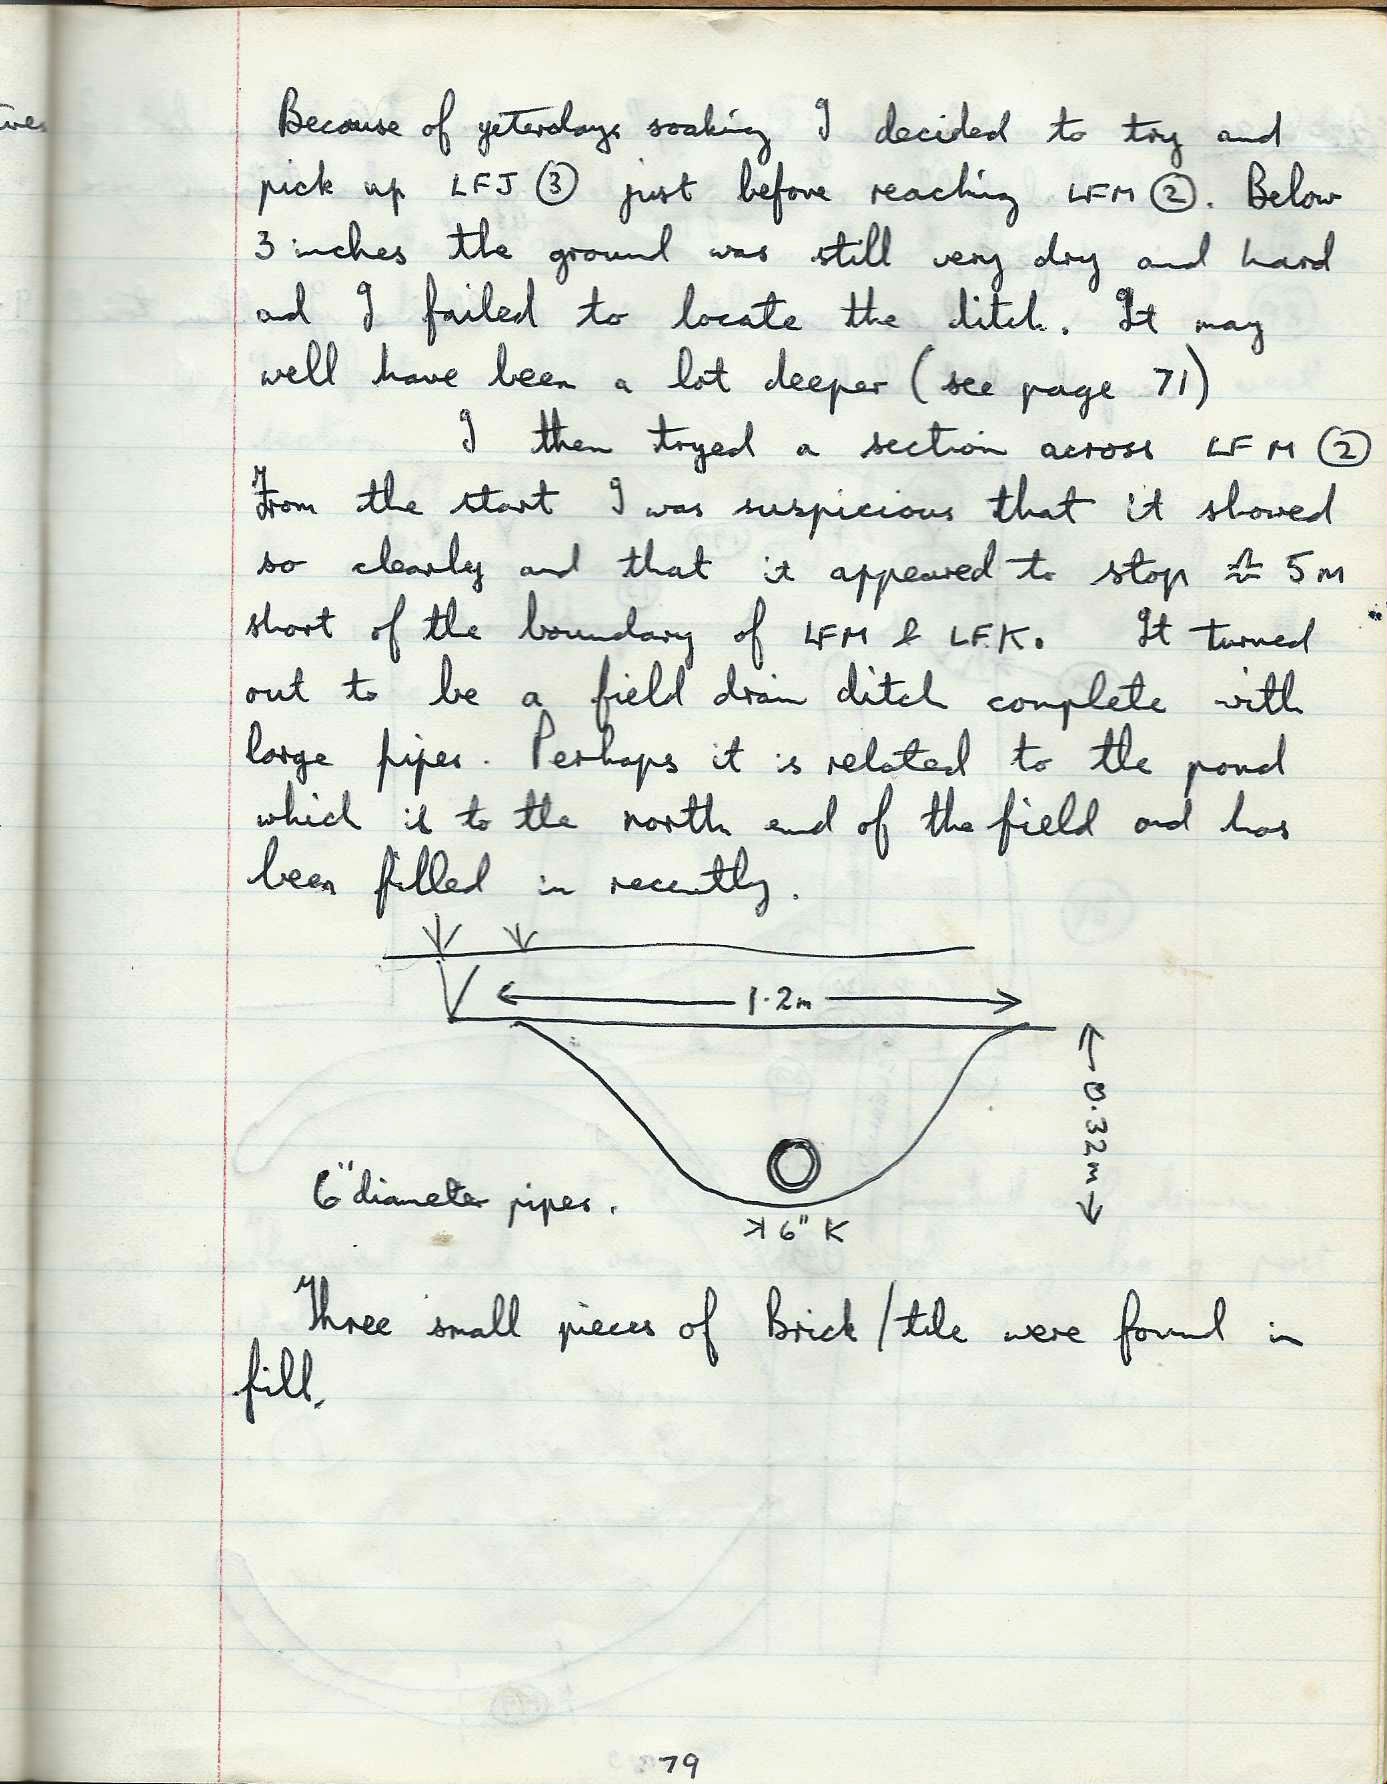 Because of yeterdays soaking I decided to try and
pick up LFJ ③ just before reaching LFM ②. Below
3 inches the ground was still very dry and hard
and I failed to locate the ditch. It may
well have been a lot deeper (see page 71)
I then tryed a section across LFM ②
From the start I was suspicious that it showed
so clearly and that it appeared to stop ≈ 5m
short of the boundary of LFM & LFK. It turned
out to be a field drain ditch complete with
large pipes. Perhaps it is related to the pond
which is to the north end of the field and has
been filled in recently.
1.2m
0.32m
6" diameter pipes.
6"
Three small pieces of Brick/tile were found in
fill.
79